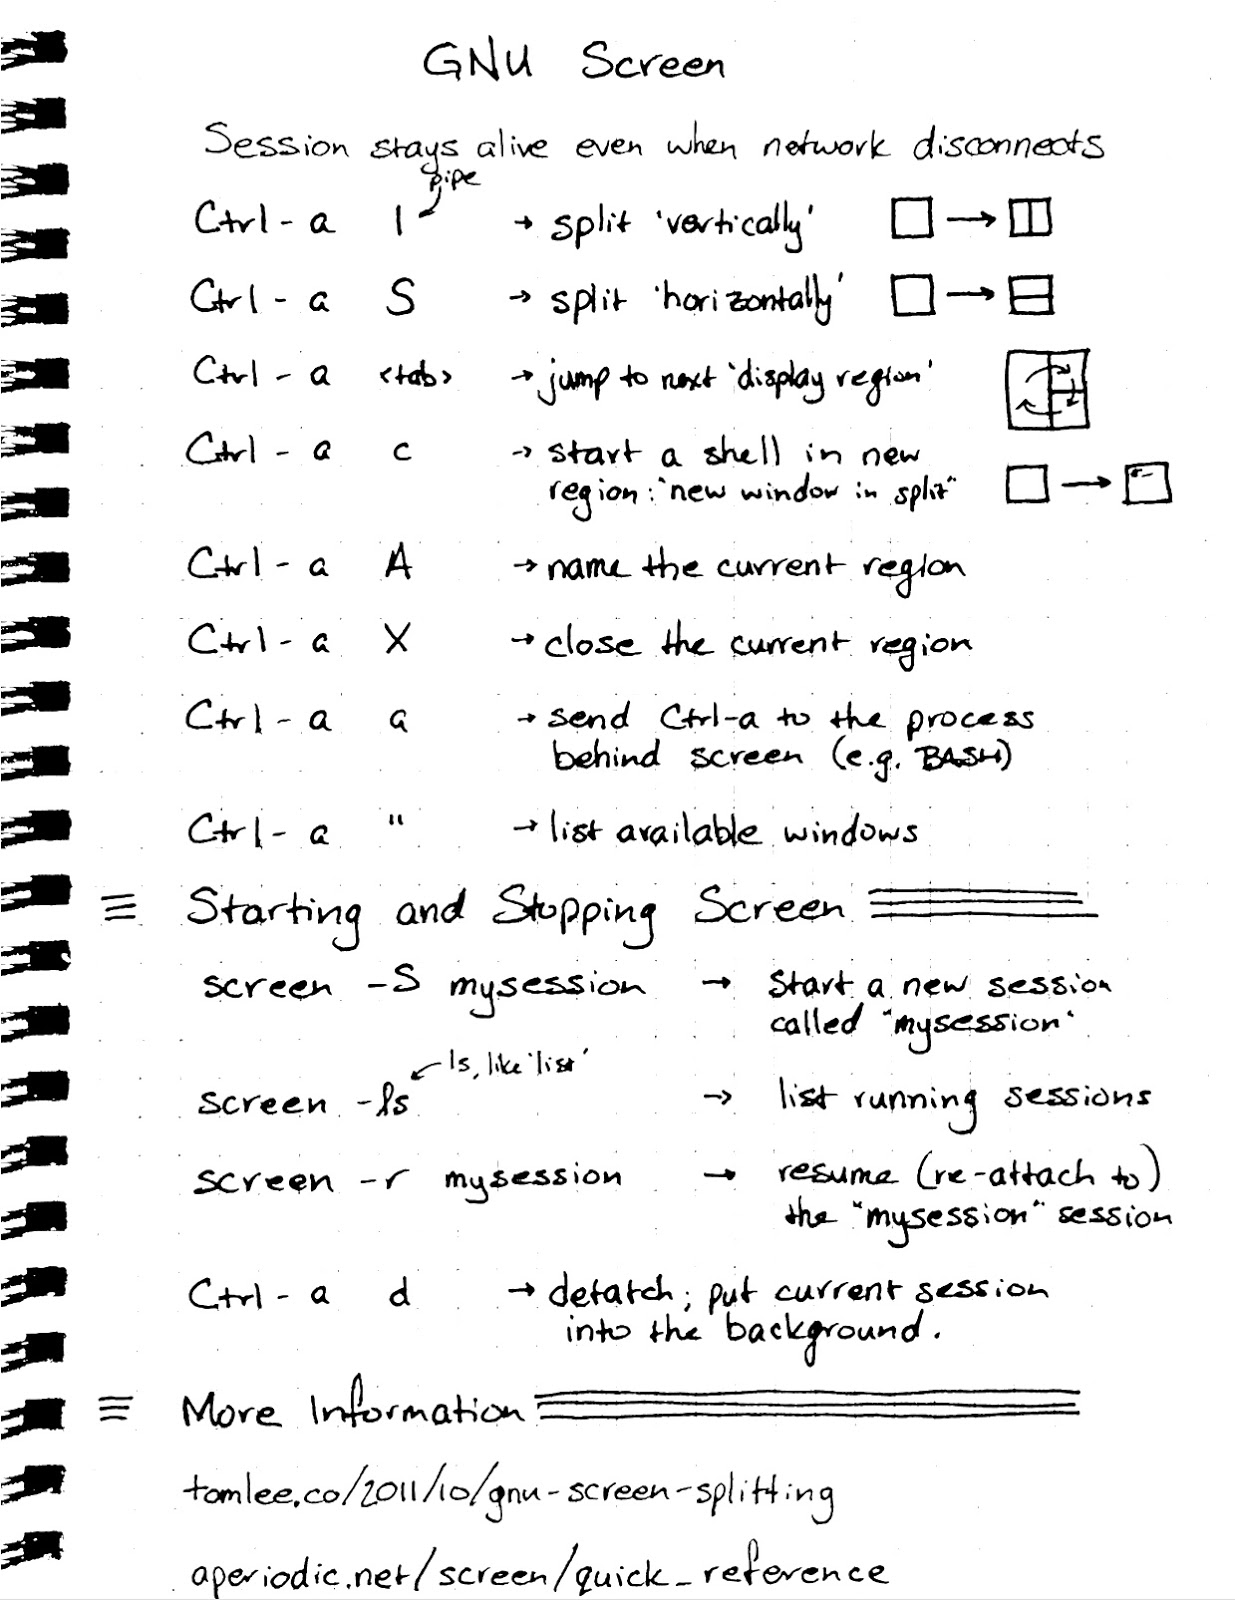 GNU Screen
Session stays alive even when network disconnects
pipe
Ctrl - a | → split 'vertically'
Ctrl - a S → split 'horizontally'
Ctrl - a <tab> → jump to next 'display region'
Ctrl - a c → start a shell in new
region: "new window in split"
Ctrl - a A → name the current region
Ctrl - a X → close the current region
Ctrl - a a → send Ctrl-a to the process
behind screen (e.g. BASH)
Ctrl - a " → list available windows
Starting and Stopping Screen
screen -S mysession → Start a new session
called "mysession"
ls, like 'list'
screen -ls → list running sessions
screen -r mysession → resume (re-attach to)
the "mysession" session
Ctrl - a d → detatch; put current session
into the background.
More Information
tomlee.co/2011/10/gnu-screen-splitting
aperiodic.net/screen/quick_reference